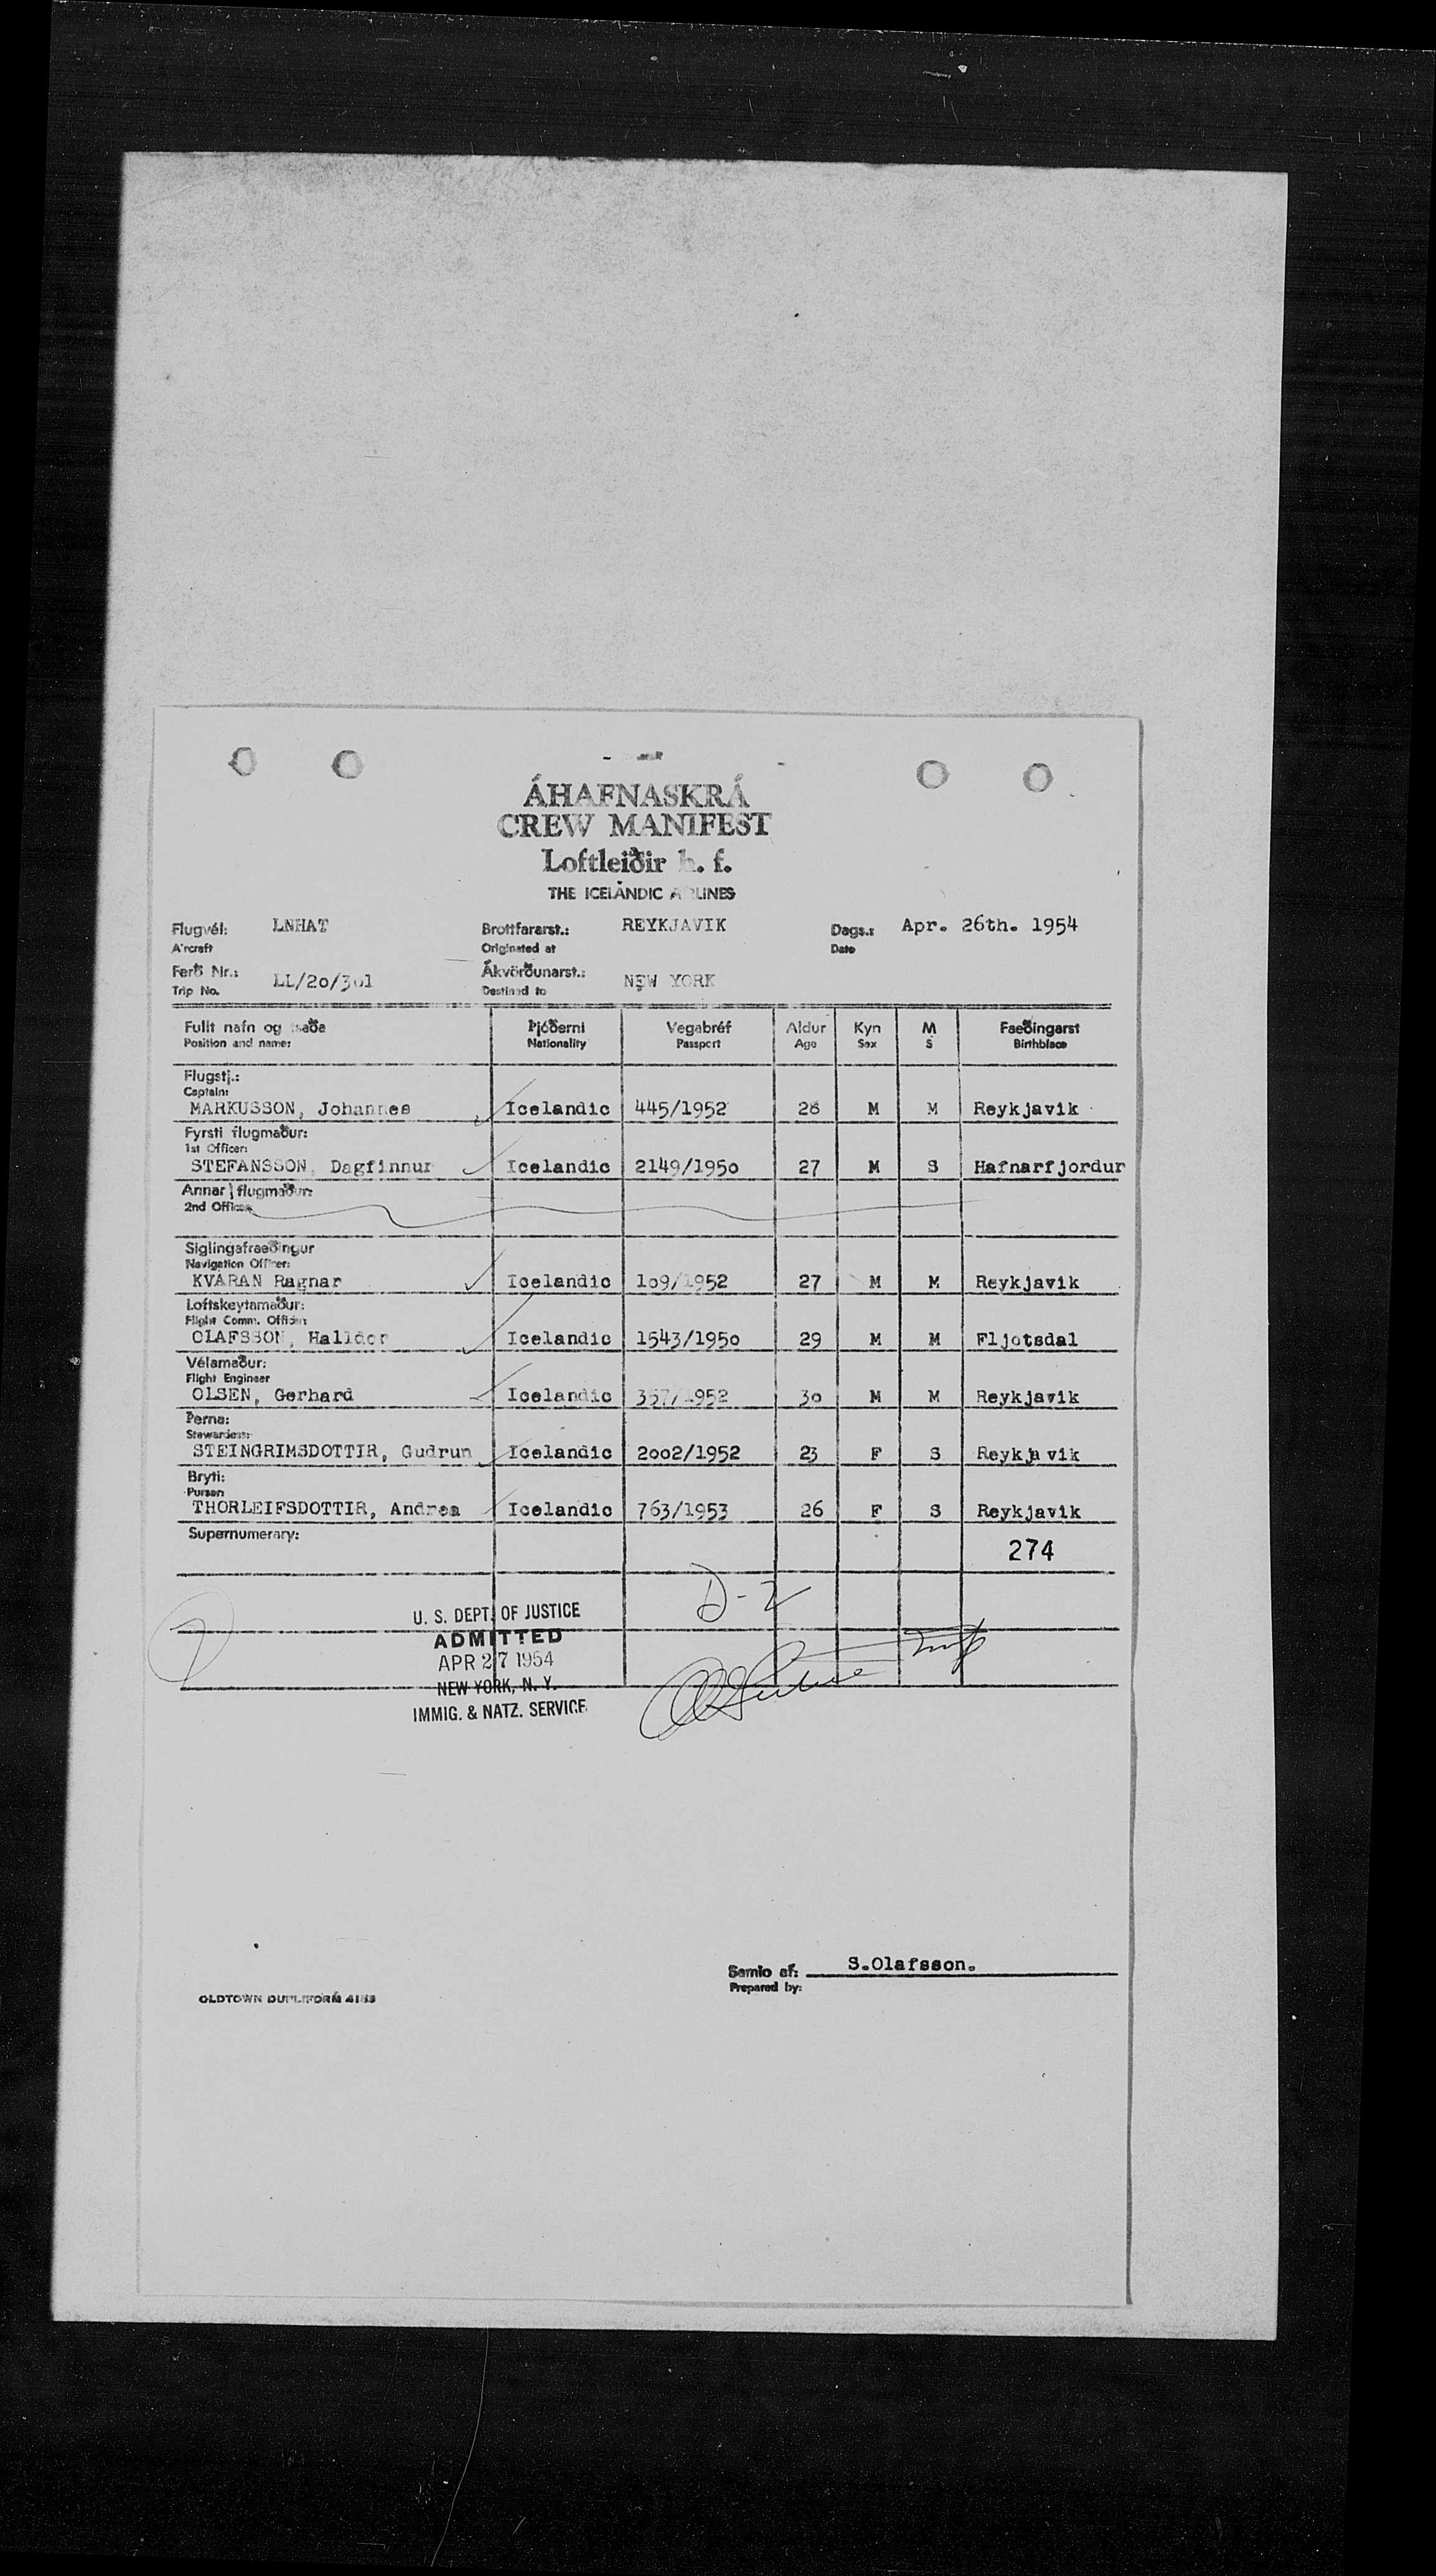 ÁHAFNASKRÁ
CREW MANIFEST
Loftleiðir h. f.
THE ICELANDIC AIRLINES
Flugvél: LNHAT Brottfararst.: REYKJAVIK Dags.: Apr. 26th. 1954
Aircraft Originated at Date
Ferð Nr.: LL/20/301 Ákvörðunarst.: NEW YORK
Trip No. Destined to
Fullt nafn og staða Þjóðerni Vegabréf Aldur Kyn M Faeðingarst
Position and name: Nationality Passport Age Sex S Birthplace
Flugstj.:
Captain:
MARKUSSON, Johannes Icelandic 445/1952 28 M M Reykjavik
Fyrsti flugmaður:
1st Officer:
STEFANSSON, Dagfinnur Icelandic 2149/1950 27 M S Hafnarfjordur
Annar flugmaður:
2nd Officer
Siglingafraeðingur
Navigation Officer:
KVARAN Ragnar Icelandic 109/1952 27 M M Reykjavik
Loftskeytamaður:
Flight Comm. Officer:
OLAFSSON, Halldor Icelandic 1543/1950 29 M M Fljotsdal
Vélamaður:
Flight Engineer
OLSEN, Gerhard Icelandic 357/1952 30 M M Reykjavik
Þerna:
Stewardess:
STEINGRIMSDOTTIR, Gudrun Icelandic 2002/1952 23 F S Reykjavik
Bryti:
Purser:
THORLEIFSDOTTIR, Andrea Icelandic 763/1953 26 F S Reykjavik
Supernumerary:
274
D-2
U. S. DEPT. OF JUSTICE
ADMITTED
APR 27 1954
NEW YORK, N. Y.
IMMIG. & NATZ. SERVICE
Samio af: S.Olafsson.
Prepared by:
OLDTOWN DUPLIFORM